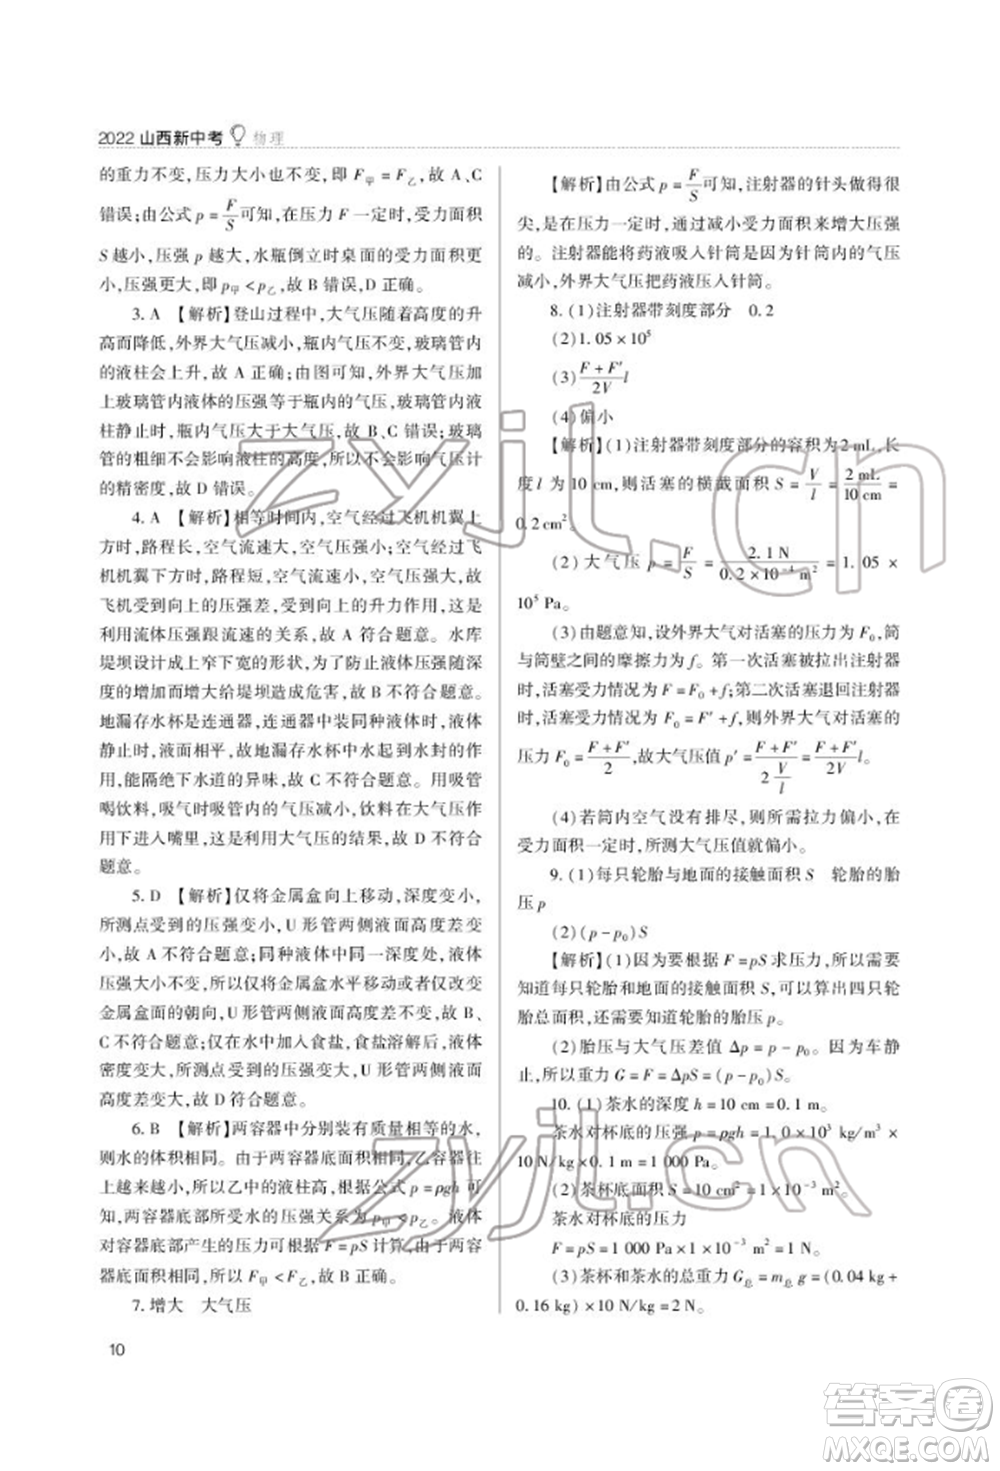 2022 山西新中考 物理
的重力不变,压力大小也不变,即 F甲=F乙,故 A、C
错误;由公式 p=F/S可知,在压力 F 一定时,受力面积
S 越小,压强 p 越大,水瓶倒立时桌面的受力面积更
小,压强更大,即 p甲<p乙,故 B 错误,D 正确。
3. A 【解析】登山过程中,大气压随着高度的升
高而降低,外界大气压减小,瓶内气压不变,玻璃管内
的液柱会上升,故 A 正确;由图可知,外界大气压加
上玻璃管内液体的压强等于瓶内的气压,所以水
柱静止时,瓶内气压大于大气压,故 B、C 错误;玻璃
管的粗细不会影响液柱的高度,所以不会影响气压计
的精密度,故 D 错误。
4. A 【解析】相等时间内,空气经过飞机机翼上
方时,路程长,空气流速大,空气压强小;空气经过飞
机机翼下方时,路程短,空气流速小,空气压强大,故
飞机受到向上的压强差,受到向上的升力作用,这是
利用流体压强跟流速的关系,故 A 符合题意。水库
堤坝设计成上窄下宽的形状,为了防止液体压强随深
度的增加而增大给堤坝造成危害,故 B 不符合题意。
地漏存水杯是连通器,连通器中装同种液体时,液体
静止时,液面相平,故地漏存水杯中起到水封的作用,
能隔绝下水道的异味,故 C 不符合题意。用吸管
喝饮料,吸气时吸管内的气压减小,饮料在大气压作
用下进入嘴里,这是利用大气压的结果,故 D 不符合
题意。
5. D 【解析】仅将金属盒向上移动,深度变小,
所测点受到的压强变小,U 形管两侧液面高度差变
小,故 A 不符合题意;同种液体中同一深度处,液体
压强相等,所以仅将金属盒水平移动或者仅改变
金属盒的朝向,U 形管两侧液面高度差不变,故 B、
C 不符合题意;仅在水中加入食盐,食盐溶解后,液体
密度变大,所测点受到的压强变大,U 形管两侧液面
高度差变大,故 D 符合题意。
6. B 【解析】两容器中分别装有质量相等的水,
则水的体积相同。由于两容器底面积相同,乙容器往
上越来越小,所以乙中的液柱高,根据公式 p=ρgh 可
知,两容器底部所受水的压强关系为 p甲<p乙。液体
对容器底部产生的压力可根据 F=pS 计算,由于两容
器底面积相同,所以 F甲<F乙,故 B 正确。
7. 增大 大气压
【解析】由公式 p=F/S可知,注射器的针头做得很
尖,是在压力一定时,通过减小受力面积来增大压强
的。注射器能将药液吸入针筒是因为针筒内的气压
减小,外界大气压把药液压入针筒。
8. (1)注射器带刻度部分 0.2
(2)1.05×10⁵
(3)(F+F′)/2V l
(4)偏小
【解析】(1)注射器带刻度部分的容积为 2 mL,长
度 l 为 10 cm,则活塞的横截面积 S=V/l=2 mL/10 cm=
0.2 cm²。
(2)大气压 p=F/S=2.1 N/(0.2×10⁻⁴ m²)=1.05×
10⁵ Pa。
(3)由题意知,设外界大气对活塞的压力为 F₀,筒
与筒壁之间的摩擦力为 f。第一次活塞被拉出注射器
时,活塞受力情况为 F=F₀+f;第二次活塞退回注射器
时,活塞受力情况为 F₀=F′+f,则外界大气对活塞的
压力 F₀=(F+F′)/2,故大气压值 p′=(F+F′)/(2 V/l)=(F+F′)/2V l。
(4)若筒内空气没有排尽,则所需拉力偏小,在
受力面积一定时,所测大气压值就偏小。
9. (1)每只轮胎与地面的接触面积 S 轮胎的胎
压 p
(2)(p-p₀)S
【解析】(1)因为要根据 F=pS 求压力,所以需要
知道每只轮胎和地面的接触面积 S,可以算出四只轮
胎总面积,还需要知道轮胎的胎压 p。
(2)胎压与大气压差值 Δp=p-p₀。因为车静
止,所以重力 G=F=ΔpS=(p-p₀)S。
10. (1)茶水的深度 h=10 cm=0.1 m,
茶水对杯底的压强 p=ρgh=1.0×10³ kg/m³×
10 N/kg×0.1 m=1 000 Pa。
(2)茶杯底面积 S=10 cm²=1×10⁻³ m²,
茶水对杯底的压力
F=pS=1 000 Pa×1×10⁻³ m²=1 N。
(3)茶杯和茶水的总重力 G总=m总 g=(0.04 kg+
0.16 kg)×10 N/kg=2 N。
10
zyjl.cn
zyjl.cn
答案圈
MXQE.COM